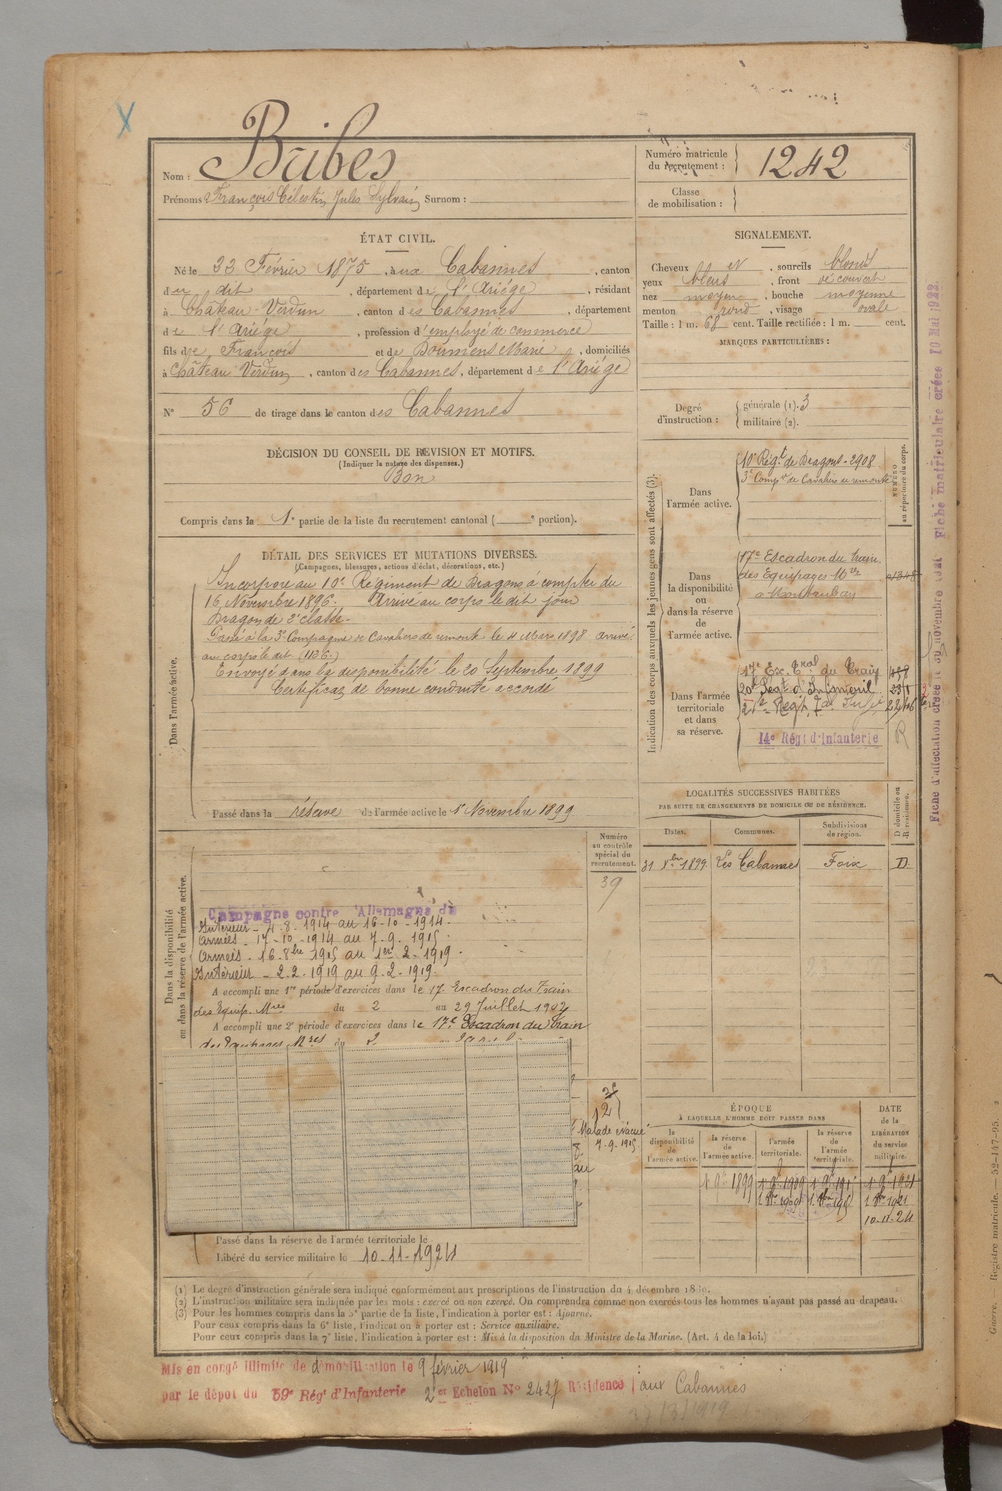 Bribes
Nom :
Prénoms : François Célestin Jules Sylvain Surnom :
Numéro matricule
du recrutement :
1242
Classe
de mobilisation :
ÉTAT CIVIL.
Né le 23 Février 1875, aux Cabannes, canton
du dit, département de l'Ariége, résidant
à Château-Verdun, canton des Cabannes, département
de l'Ariége, profession d'employé de commerce
fils de François et de Doumenc Marie, domiciliés
à Château Verdun, canton des Cabannes, département de l'Ariége
N° 56 de tirage dans le canton des Cabannes
SIGNALEMENT.
Cheveux et, sourcils blonds
yeux bleus, front découvert
nez moyen, bouche moyenne
menton rond, visage ovale
Taille : 1 m. 68 cent. Taille rectifiée : 1 m. cent.
MARQUES PARTICULIÈRES :
Degré
d'instruction :
générale (1). 3
militaire (2).
DÉCISION DU CONSEIL DE REVISION ET MOTIFS.
(Indiquer la nature des dispenses.)
Bon
Compris dans la 1e partie de la liste du recrutement cantonal ( e portion).
DÉTAIL DES SERVICES ET MUTATIONS DIVERSES.
(Campagnes, blessures, actions d'éclat, décorations, etc.)
Dans l'armée active.
Incorporé au 10e Régiment de Dragons à compter du
16 Novembre 1896. Arrivé au corps le dit jour
Dragon de 2e classe.
Passé à la 3e Compagnie de Cavaliers de remonte le 4 Mars 1898 arrivé
au corps le dit (1136.)
Envoyé dans la disponibilité le 20 Septembre 1899
Certificat de bonne conduite accordé
Passé dans la réserve de l'armée active le 1er Novembre 1899
Indication des corps auxquels les jeunes gens sont affectés (3).
NUMÉRO
au répertoire du corps.
Dans
l'armée active.
10e Régt de Dragons - 2908
3e Compie de Cavaliers de remonte
Dans
la disponibilité
ou
dans la réserve
de
l'armée active.
17e Escadron du train
des Equipages Mres
à Montauban
Dans l'armée
territoriale
et dans
sa réserve.
17e Es. Tal du Train
14e Régt d'Infanterie
R
LOCALITÉS SUCCESSIVES HABITÉES
PAR SUITE DE CHANGEMENTS DE DOMICILE OU DE RÉSIDENCE.
D domicile ou
R résidence.
Dates. Communes. Subdivisions
de région.
31 Xbre 1899 Les Cabannes Foix D
Dans la disponibilité
ou dans la réserve de l'armée active.
Numéro
au contrôle
spécial du
recrutement.
39
Campagne contre Allemagne du
Intérieur - 4.8.1914 au 16-10-1914.
Armées - 17-10-1914 au 7-9-1915
Armées - 16-8bre 1915 au 1er-2-1919.
Intérieur - 2-2-1919 au 9-2-1919
A accompli une 1re période d'exercices dans le 17e Escadron du Train
des Equip. Mres du 2 au 29 Juillet 1902
A accompli une 2e période d'exercices dans le 17e Escadron du train
des Equipages Mres du
Malade évacué
7-9-1915
ÉPOQUE
À LAQUELLE L'HOMME DOIT PASSER DANS
la
disponibilité
de
l'armée active.
la réserve
de
l'armée active.
l'armée
territoriale.
la réserve
de
l'armée
territoriale.
DATE
de la
LIBÉRATION
du service
militaire.
10-11-24
Passé dans la réserve de l'armée territoriale le
Libéré du service militaire le 10-11-1924
(1) Le degré d'instruction générale sera indiqué conformément aux prescriptions de l'instruction du 4 décembre 1889.
(2) L'instruction militaire sera indiquée par les mots : exercé ou non exercé. On comprendra comme non exercés tous les hommes n'ayant pas passé au drapeau.
(3) Pour les hommes compris dans la 5e partie de la liste, l'indication à porter est : Ajourné.
Pour ceux compris dans la 6e liste, l'indication à porter est : Service auxiliaire.
Pour ceux compris dans la 7e liste, l'indication à porter est : Mis à la disposition du Ministre de la Marine. (Art. 4 de la loi.)
Mis en congé illimité de démobilisation le 9 février 1919
par le dépôt du 59e Régt d'Infanterie 2e Echelon N° 2427 Résidence aux Cabannes
Fiche d'affectation créée le novembre Fiche matriculaire créée 10 Mai 1922
Registre matricule.